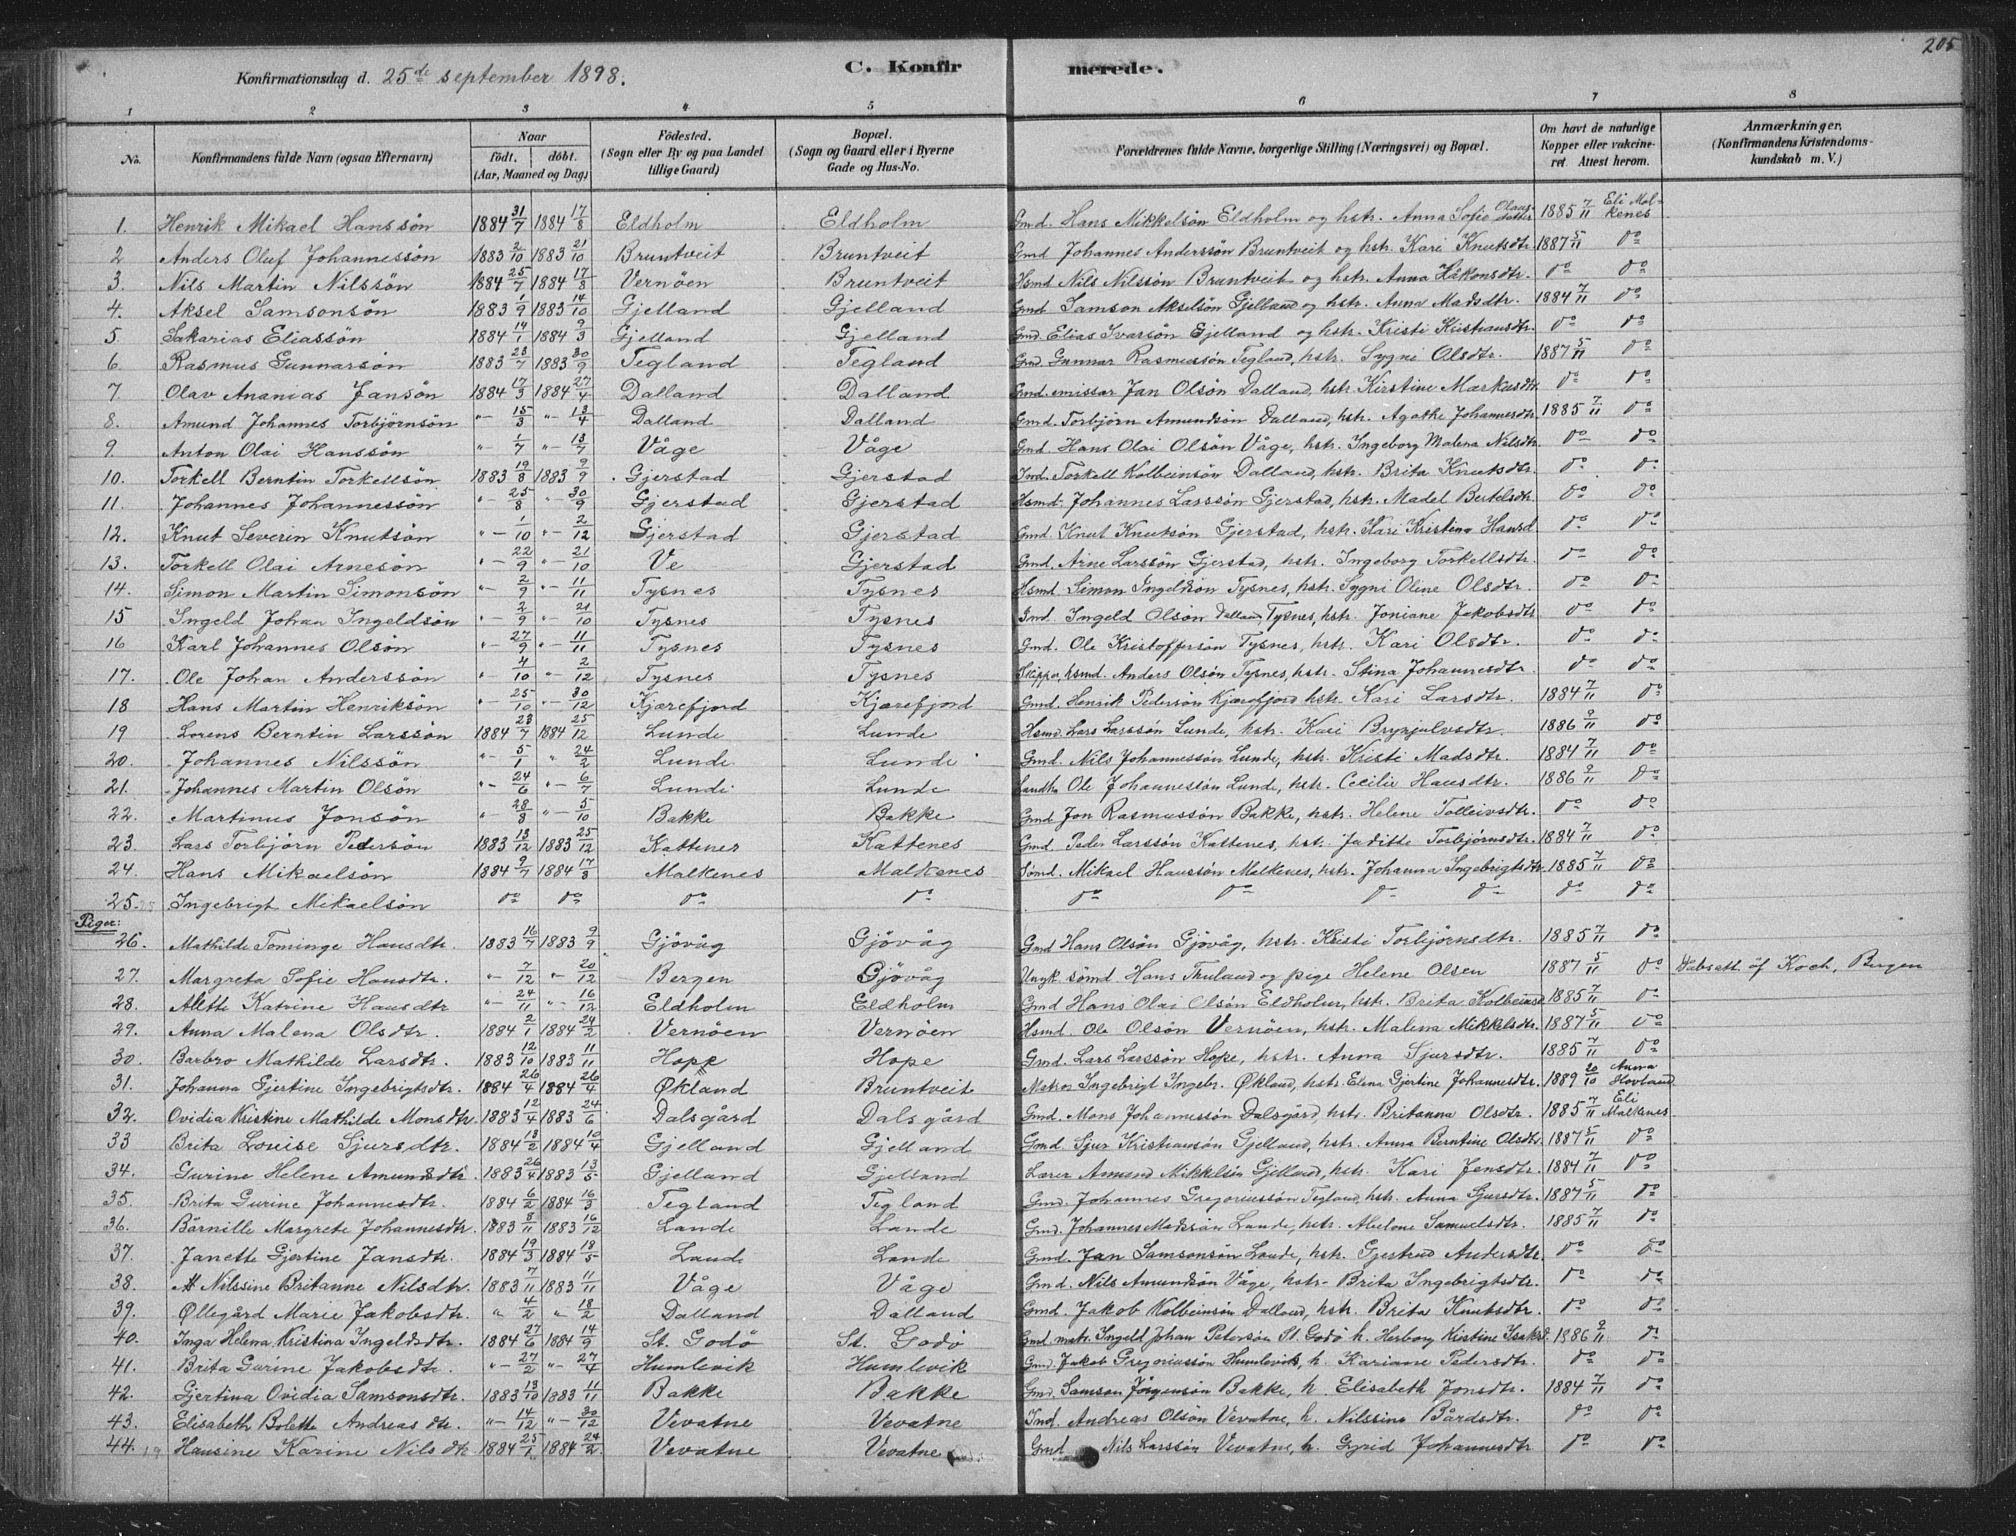 205
Konfirmationsdag d. 25de september 1898. C. Konfir merede.
1 2 3 4 5 6 7 8
No. Konfirmandens fulde Navn (ogsaa Efternavn) Naar født, døbt. (Aar, Maaned og Dag) Fødested. (Sogn eller By og paa Landet tillige Gaard) Bopæl. (Sogn og Gaard eller i Byerne Gade og Hus-No. Forældrenes fulde Navne, borgerlige Stilling (Næringsvei) og Bopæl. Om havt de naturlige Kopper eller vakcineret. Attest herom. Anmærkninger. (Konfirmandens Kristendomskundskab m. V.)
1. Henrik Mikael Hanssön 1884 31/7 1884 17/8 Eldholm Eldholm Gmd. Hans Mikkelsön Eldholm og hstr. Anna Sofie Olausdatter 1885 7/11 Eli Malkenes
2 Anders Oluf Johannessön 1883 2/10 1883 21/10 Bruntveit Bruntveit Gmd Johannes Anderssön Bruntveit og hstr. Kari Knutsdtr. 1887 5/11 do
3. Nils Martin Nilssön 1884 25/7 1884 17/8 Vernöen Bruntveit Hsmd Nils Nilssön Bruntveit og hstr. Anna Håkonsdtr. do do
4. Aksel Samsonsön 1883 1/9 1883 14/10 Gjelland Gjelland Gmd. Samson Akselsön Gjelland og hstr. Anna Madsdtr. 1884 7/11 do
5 Sakarias Eliassön 1884 14/1 1884 9/3 Gjelland Gjelland Gmd. Elias Ivarsön Gjelland og hstr. Kristi Kristiansdtr. do do
6. Rasmus Gunnarsön 1883 23/7 1883 30/9 Tegland Tegland Gmd. Gunnar Rasmussön Tegland, hstr. Sygni Olsdtr. 1887 5/11 do
7. Olav Ananias Jansön 1884 17/3 1884 27/4 Dalland Dalland Gmd. emissær Jan Olsön Dalland, hstr. Kirstine Markusdtr. do do
8. Amund Johannes Torbjörnsön "- 15/3 "- 13/4 Dalland Dalland Gmd. Torbjörn Amundsön Dalland, hstr. Agathe Johannesdtr. 1885 7/11 do
9. Anton Olai Hanssön " 1/7 "- 13/7 Våge Våge Gmd. Hans Olai Olsön Våge, hstr. Ingeborg Malena Nilsdtr. do do
10. Torkell Berntin Torkellsön 1883 19/8 1883 9/9 Gjerstad Gjerstad Ind. Torkell Kolbeinsön Dalland, hstr. Brita Knutsdtr. do do
11. Johannes Johannessön "- 25/8 "- 30/9 Gjerstad Gjerstad Hsmd. Johannes Larssön Gjerstad, hstr. Madel Bertelsdtr. do do
12. Knut Severin Knutsön "- 1/10 "- 2/12 Gjerstad Gjerstad Gmd. Knut Knutsön Gjerstad, hstr. Kari Kristina Hansd do do
13. Torkell Olai Arnesön "- 22/9 "- 21/10 Ve Gjerstad Gmd. Arne Larssön Gjerstad, hstr. Ingeborg Torkellsdtr. do do
14. Simon Martin Simonsön "- 2/9 "- 11/11 Tysnes Tysnes Hsmd. Simon Ingeldsön Tysnes, hstr. Sygni Oline Olsdtr. do do
15 Ingeld Johan Ingeldsön "- 2/9 "- 21/10 Tysnes Tysnes Ind. Ingeld Olsön Dalland Tysnes, hstr. Joniane Jakobsdtr. do do
16 Karl Johannes Olsön "- 27/9 "- 11/11 Tysnes Tysnes Gmd. Ole Kristoffersön Tysnes, hstr. Kari Olsdtr. do do
17. Ole Johan Anderssön "- 4/10 "- 2/12 Tysnes Tysnes Skipper, hsmd. Anders Olsön Tysnes, hstr. Stina Johannesdtr. do do
18 Hans Martin Henriksön "- 25/10 "- 30/12 Kjærefjord Kjærefjord Gmd. Henrik Pedersön Kjærefjord hstr. Kari Larsdtr. 1884 7/11 do
19 Lorens Berntin Larssön 1884 23/7 1884 25/12 Lunde Lunde Hsmd. Lars Larssön Lunde, hstr. Kari Brynjulvsdtr. 1886 9/11 do
20. Johannes Nilssön "- 5/1 " 24/2 Lunde Lunde Gmd. Nils Johannessön Lunde, hstr. Kristi Madsdtr. 1884 7/11 do
21. Johannes Martin Olsön "- 24/6 "- 6/7 Lunde Lunde Landh. Ole Johannessön Lunde, hstr. Cecilie Hansdtr. 1886 9/11 do
22. Martinus Jonsön "- 28/8 "- 5/10 Bakke Bakke Gmd Jon Rasmussön Bakke, hstr. Helene Tolleivsdtr. do do
23. Lars Torbjörn Pedersön 1883 13/12 1883 25/12 Kattenes Kattenes Gmd. Peder Larssön Kattenes, hst. Juditte Torbjörnsdtr. 1884 7/11 do
24. Hans Mikaelsön 1884 9/7 1884 17/8 Malkenes Malkenes Sömd. Mikael Hanssön Malkenes, hstr. Johanna Ingebrigtsdtr. 1885 7/11 do
25. Ingebrigt Mikaelsön do do do do do do do do do do
Piger:
26. Mathilde Tominge Hansdtr. 1883 16/7 1883 9/9 Gjövåg Gjövåg Gmd Hans Olsön Gjövåg, hstr. Kristi Torbjörnsdtr. 1885 7/11 do
27. Margreta Sofie Hansdtr. "- 7/12 "- 20/12 Bergen Gjövåg Ungk. sömd Hans Thuland og pige Helene Olsen 1887 5/11 do Udsatt af Koch, Bergen
28. Alette Katrine Hansdtr "- 24/11 "- 16/12 Eldholm Eldholm Gmd Hans Olai Olsön Eldholm, hstr. Brita Kolbeinsd 1885 7/11 do
29. Anna Malena Olsdtr. 1884 2/1 1884 24/2 Vernöen Vernöen Hsmd. Ole Olsön Vernöen, hstr. Malena Mikkelsdtr. 1887 5/11 do
30. Barbro Mathilde Larsdtr. 1883 12/10 1883 11/11 Hope Hope Gmd. Lars Larssön Hope, hstr. Anna Sjursdtr. 1885 7/11 do
31. Johanna Gjertine Ingebrigtsdtr. 1884 26/4 1884 26/4 Økland Bruntveit Matros Ingebrigt Ingebr. Økland, hstr. Elena Gjertine Johannesdtr. 1889 20/10 Anna Hovland
32. Ovidia Kristine Mathilde Monsdtr. 1883 12/4 1883 24/6 Dalsgård Dalsgård Gmd. Mons Johannessön Dalsgård, hstr. Britanna Olsdtr. 1885 7/11 Eli Malkenes
33 Brita Louise Sjursdtr. 1884 13/2 1884 10/4 Gjelland Gjelland Gmd. Sjur Kristiansön Gjelland, hstr. Anna Berntine Olsdtr. 1887 5/11 do
34. Gurine Helene Amundsdtr. 1883 26/4 1883 13/5 Gjelland Gjelland Lærer Amund Mikkelsön Gjelland, hstr. Kari Jensdtr. 1884 7/11 do
35. Brita Gurine Johannesdtr. 1884 6/2 1884 16/3 Tegland Tegland Gmd. Johannes Gregoriussön Tegland, hstr. Anna Sjursdtr. 1887 5/11 do
36. Bårnille Margrete Johannesdtr. 1883 8/11 1883 16/12 Lande Lande Gmd. Johannes Madssön Lande, hstr. Abelone Samuelsdtr. 1885 7/11 do
37. Janette Gjertine Jansdtr. 1884 19/3 1884 18/5 Lande Lande Gmd. Jan Samsonsön Lande, hstr. Gjertrud Andersdtr. do do
38. Nilssine Britanne Nilsdtr. 1883 7/11 1883 11/11 Våge Våge Gmd. Nils Amundsön Våge, hstr- Brita Ingebrigtsdtr. do do
39. Øllegård Marie Jakobsdtr. " 4/2 " 18/2 Dalland Dalland Gmd. Jakob Kolbeinsön Dalland, hstr. Brita Knutsdtr. do do
40. Inga Helena Kristina Ingeldsdtr. 1884 27/6 1884 14/9 St. Godö St. Godö Gmd. matr. Ingeld Johan Petersön St. Godö h. Herborg Kistine Isaksd. 1886 9/11 do
41. Brita Gurine Jakobsdtr. "- 27/2 "- 27/4 Humlevik Humlevik Gmd. Jakob Gregoriussön Humlevik, h. Kariane Pedersdtr. do do
42. Gjertina Ovidia Samsonsdtr. 1883 13/10 1883 11/11 Bakke Bakke Gmd. Samson Jörgensön Bakke, h. Elisabeth Jonsdtr. 1884 7/11 do
43. Elisabeth Bolette Andreasdtr. "- 14/12 "- 30/12 Vevatne Vevatne Ind. Andreas Olsön Vevatne, h. Nilssine Bårdsdtr. do do
44. Hansine Karine Nilsdtr 1884 25/1 1884 24/2 Vevatne Vevatne Gmd Nils Larssön Vevatne, h. Gjrid Johannesdtr do do